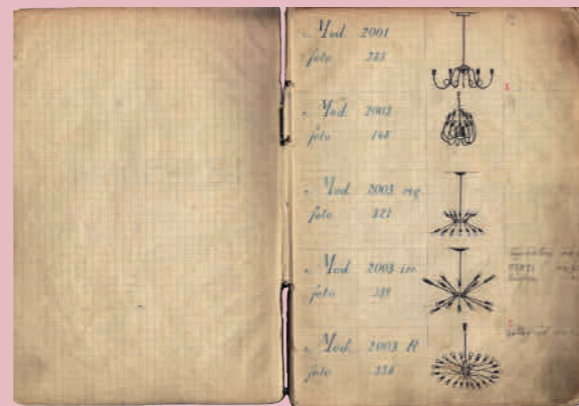 Mod. 2001
foto 285
Mod. 2002
foto 148
Mod. 2003 reg.
foto 327
Mod. 2003 irr.
foto 339
Mod. 2003 R
foto 336